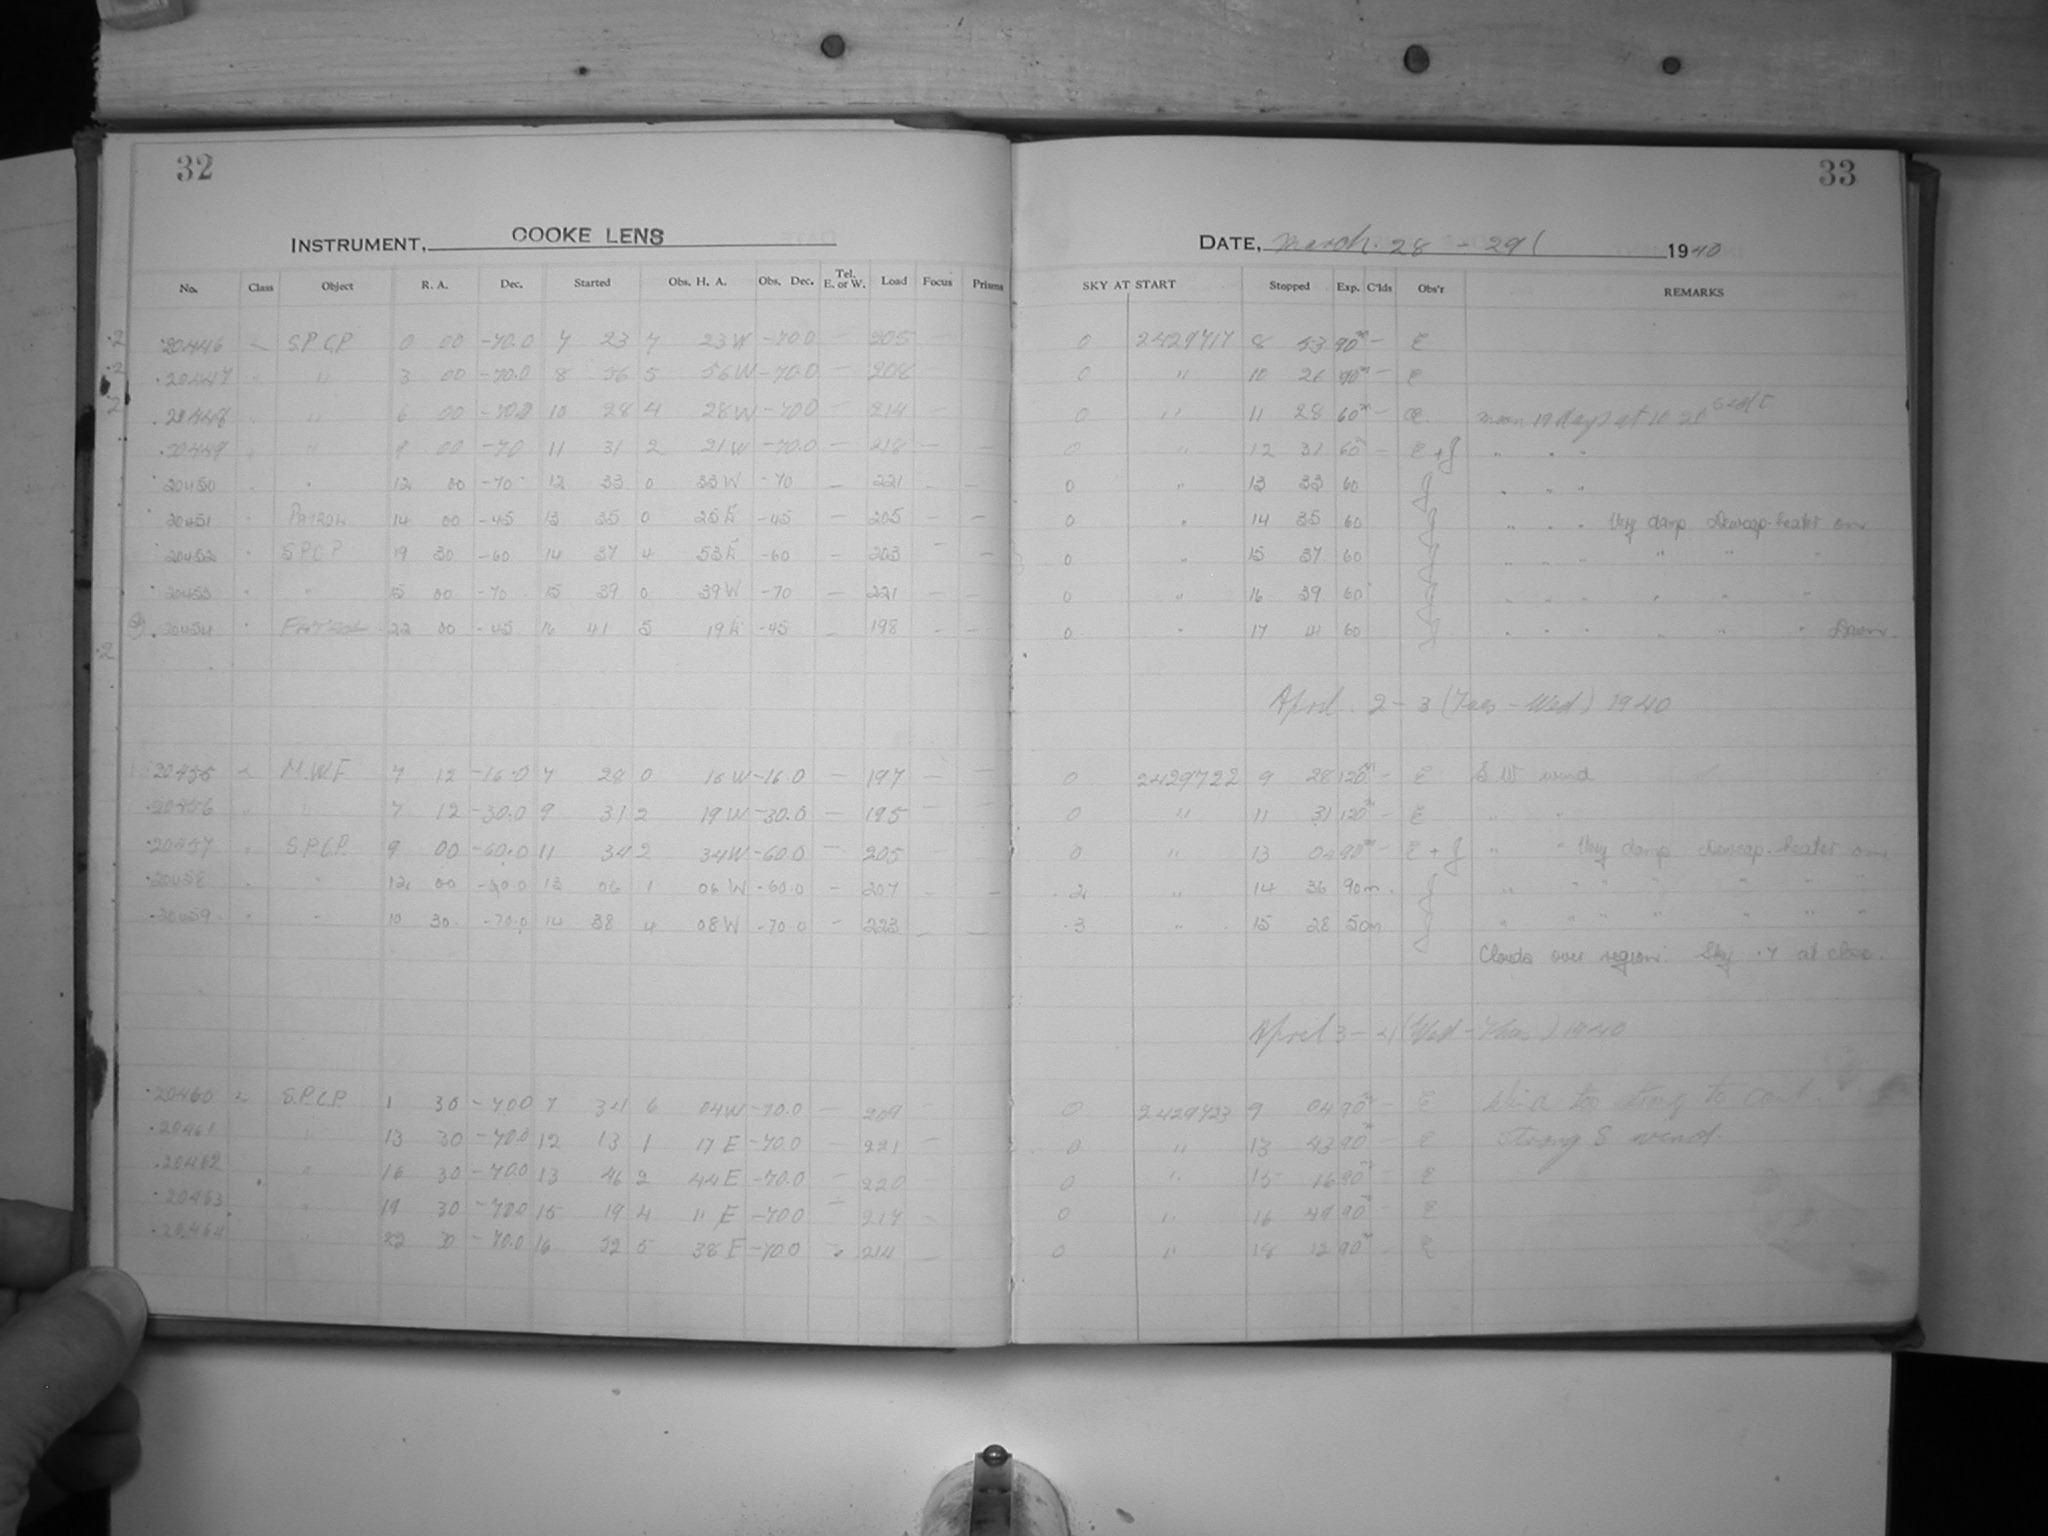 32
INSTRUMENT, COOKE LENS
No. Class Object R. A. Dec. Started Obs. H. A. Obs. Dec. Tel. E. or W. Load Focus Prisms
20446 S.P.C.P. 0 00 -70.0 7 23 7 23 W -70.0 — 205 —
20447 " 3 00 -70.0 8 56 5 56 W -70.0 — 208 —
20448 " 6 00 -70.0 10 28 4 28 W -70.0 — 214 —
20449 " 9 00 -70 11 31 2 21 W -70.0 — 218 — —
20450 " 12 00 -70 12 33 0 33 W -70 — 221 — —
20451 " PATROL 14 00 -45 13 35 0 25 E -45 — 205 — —
20452 " S.P.C.P 19 30 -60 14 37 4 53 E -60 — 203 — —
20453 " " 15 00 -70 15 39 0 39 W -70 — 221 — —
20454 " PATROL 22 00 -45 16 41 5 19 E -45 — 198 — —
20455 M.W.F. 7 12 -16.0 7 28 0 16 W -16.0 — 197 — —
20456 " 7 12 -30.0 9 31 2 19 W -30.0 — 195 — —
20457 " S.P.C.P. 9 00 -60.0 11 34 2 34 W -60.0 — 205 — —
20458 " " 12 00 -60.0 13 06 1 06 W -60.0 — 207 — —
20459 " " 10 30 -70.0 14 38 4 08 W -70.0 — 223 — —
20460 S.P.C.P. 1 30 -70.0 7 34 6 04 W -70.0 — 209 —
20461 " 13 30 -70.0 12 13 1 17 E -70.0 — 221 —
20462 " 16 30 -70.0 13 46 2 44 E -70.0 — 220 —
20463 " 19 30 -70.0 15 19 4 11 E -70.0 — 217 —
20464 " 22 30 -70.0 16 52 5 38 E -70.0 — 214 —
33
DATE, March. 28 - 29 1940
SKY AT START Stopped Exp. C'lds Obs'r REMARKS
0 2429717 8 53 90m — E
0 " 10 26 90m — E
0 " 11 28 60m — E moon 19 days at 10 20
0 " 12 31 60 — E + J " " "
0 " 13 33 60 J " " "
0 " 14 35 60 J " " " Very damp Dewcap-heater on
0 " 15 37 60 J " " " " " "
0 " 16 39 60 J " " " " " "
0 " 17 41 60 J " " " " " " Dawn.
April 2 - 3 (Tues - Wed) 1940
0 2429722 9 28 120m — E S W wind
0 " 11 31 120m — E " "
0 " 13 04 90m — E + J " " Very damp Dewcap-heater on
.2 " 14 36 90m. J " " " " " " "
.3 " 15 28 50m J " " " " " " "
Clouds over region. Sky .7 at close.
April 3 - 4 (Wed - Thurs) 1940
0 2429723 9 04 90m — E Wind too strong to cont.
0 " 13 43 90m — E strong S wind.
0 " 15 16 90m — E
0 " 16 49 90m — E
0 " 18 12 90m E